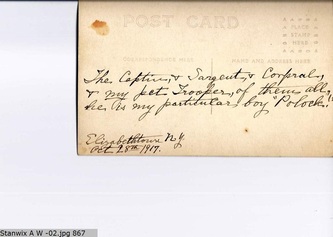 POST CARD
PLACE
STAMP
HERE
CORRESPONDENCE HERE
NAME AND ADDRESS HERE
The Captin, & Sargent, & Corpral,
& my pet Trooper, of them all,
he is my particular boy "Polock."
Elizabethtown N.Y.
Oct 28th 1917.
Stanwix A W -02.jpg 867